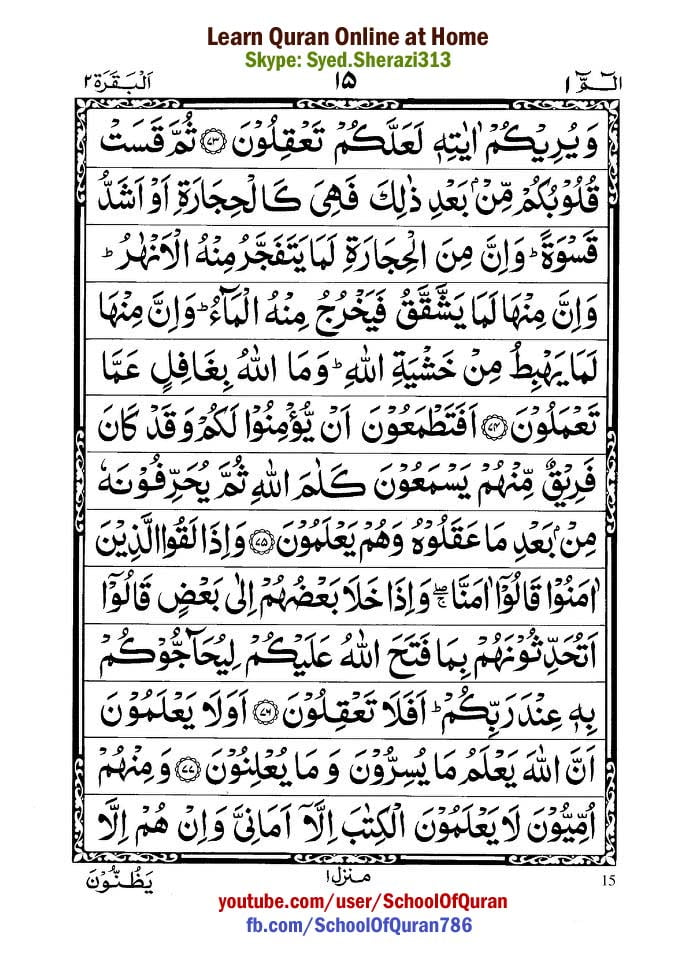 Learn Quran Online at Home
Skype: Syed.Sherazi313
الٓمّٓ ١ ١٥ اَلْبَقَرَة ٢
وَيُرِيْكُمْ اٰيٰتِهٖ لَعَلَّكُمْ تَعْقِلُوْنَ ﴿٧٣﴾ ثُمَّ قَسَتْ
قُلُوْبُكُمْ مِّنْۢ بَعْدِ ذٰلِكَ فَهِىَ كَالْحِجَارَةِ اَوْ اَشَدُّ
قَسْوَةً ؕ وَاِنَّ مِنَ الْحِجَارَةِ لَمَا يَتَفَجَّرُ مِنْهُ الْاَنْهٰرُ ؕ
وَاِنَّ مِنْهَا لَمَا يَشَّقَّقُ فَيَخْرُجُ مِنْهُ الْمَآءُ ؕ وَاِنَّ مِنْهَا
لَمَا يَهْبِطُ مِنْ خَشْيَةِ اللّٰهِ ؕ وَمَا اللّٰهُ بِغَافِلٍ عَمَّا
تَعْمَلُوْنَ ﴿٧٤﴾ اَفَتَطْمَعُوْنَ اَنْ يُّؤْمِنُوْا لَكُمْ وَقَدْ كَانَ
فَرِيْقٌ مِّنْهُمْ يَسْمَعُوْنَ كَلٰمَ اللّٰهِ ثُمَّ يُحَرِّفُوْنَهٗ
مِنْۢ بَعْدِ مَا عَقَلُوْهُ وَهُمْ يَعْلَمُوْنَ ﴿٧٥﴾ وَاِذَا لَقُوا الَّذِيْنَ
اٰمَنُوْا قَالُوْٓا اٰمَنَّا ۖۚ وَاِذَا خَلَا بَعْضُهُمْ اِلٰى بَعْضٍ قَالُوْٓا
اَتُحَدِّثُوْنَهُمْ بِمَا فَتَحَ اللّٰهُ عَلَيْكُمْ لِيُحَآجُّوْكُمْ
بِهٖ عِنْدَ رَبِّكُمْ ؕ اَفَلَا تَعْقِلُوْنَ ﴿٧٦﴾ اَوَلَا يَعْلَمُوْنَ
اَنَّ اللّٰهَ يَعْلَمُ مَا يُسِرُّوْنَ وَمَا يُعْلِنُوْنَ ﴿٧٧﴾ وَمِنْهُمْ
اُمِّيُّوْنَ لَا يَعْلَمُوْنَ الْكِتٰبَ اِلَّآ اَمَانِىَّ وَاِنْ هُمْ اِلَّا
15 منزل ١ يَظُنُّوْنَ
youtube.com/user/SchoolOfQuran
fb.com/SchoolOfQuran786